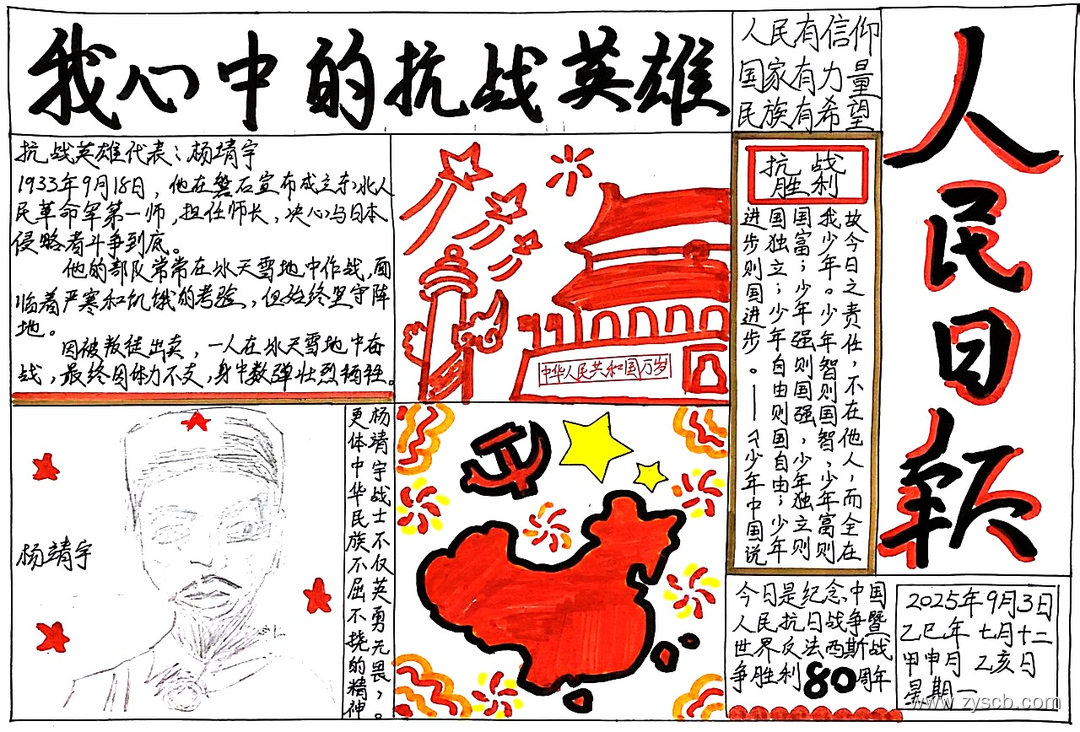 我心中的抗战英雄
人民有信仰
国家有力量
民族有希望
人民日报
抗战英雄代表：杨靖宇
1933年9月18日，他在磐石宣布成立东北人
民革命军第一师，担任师长，决心与日本
侵略者斗争到底。
他的部队常常在冰天雪地中作战，面
临着严寒和饥饿的考验，但始终坚守阵
地。
因被叛徒出卖，一人在冰天雪地中奋
战，最终因体力不支，身中数弹壮烈牺牲。
中华人民共和国万岁
抗战
胜利
故今日之责任，不在他人，而全在
我少年。少年智则国智，少年富则
国富；少年强则国强，少年独立则
国独立；少年自由则国自由；少年
进步则国进步。——《少年中国说
杨靖宇
杨靖宇战士不仅英勇无畏，
更体中华民族不屈不挠的精神。
今日是纪念中国
人民抗日战争暨
世界反法西斯战
争胜利80周年
2025年9月3日
乙巳年 七月十二
甲申月 乙亥日
星期一
www.zyscb.com